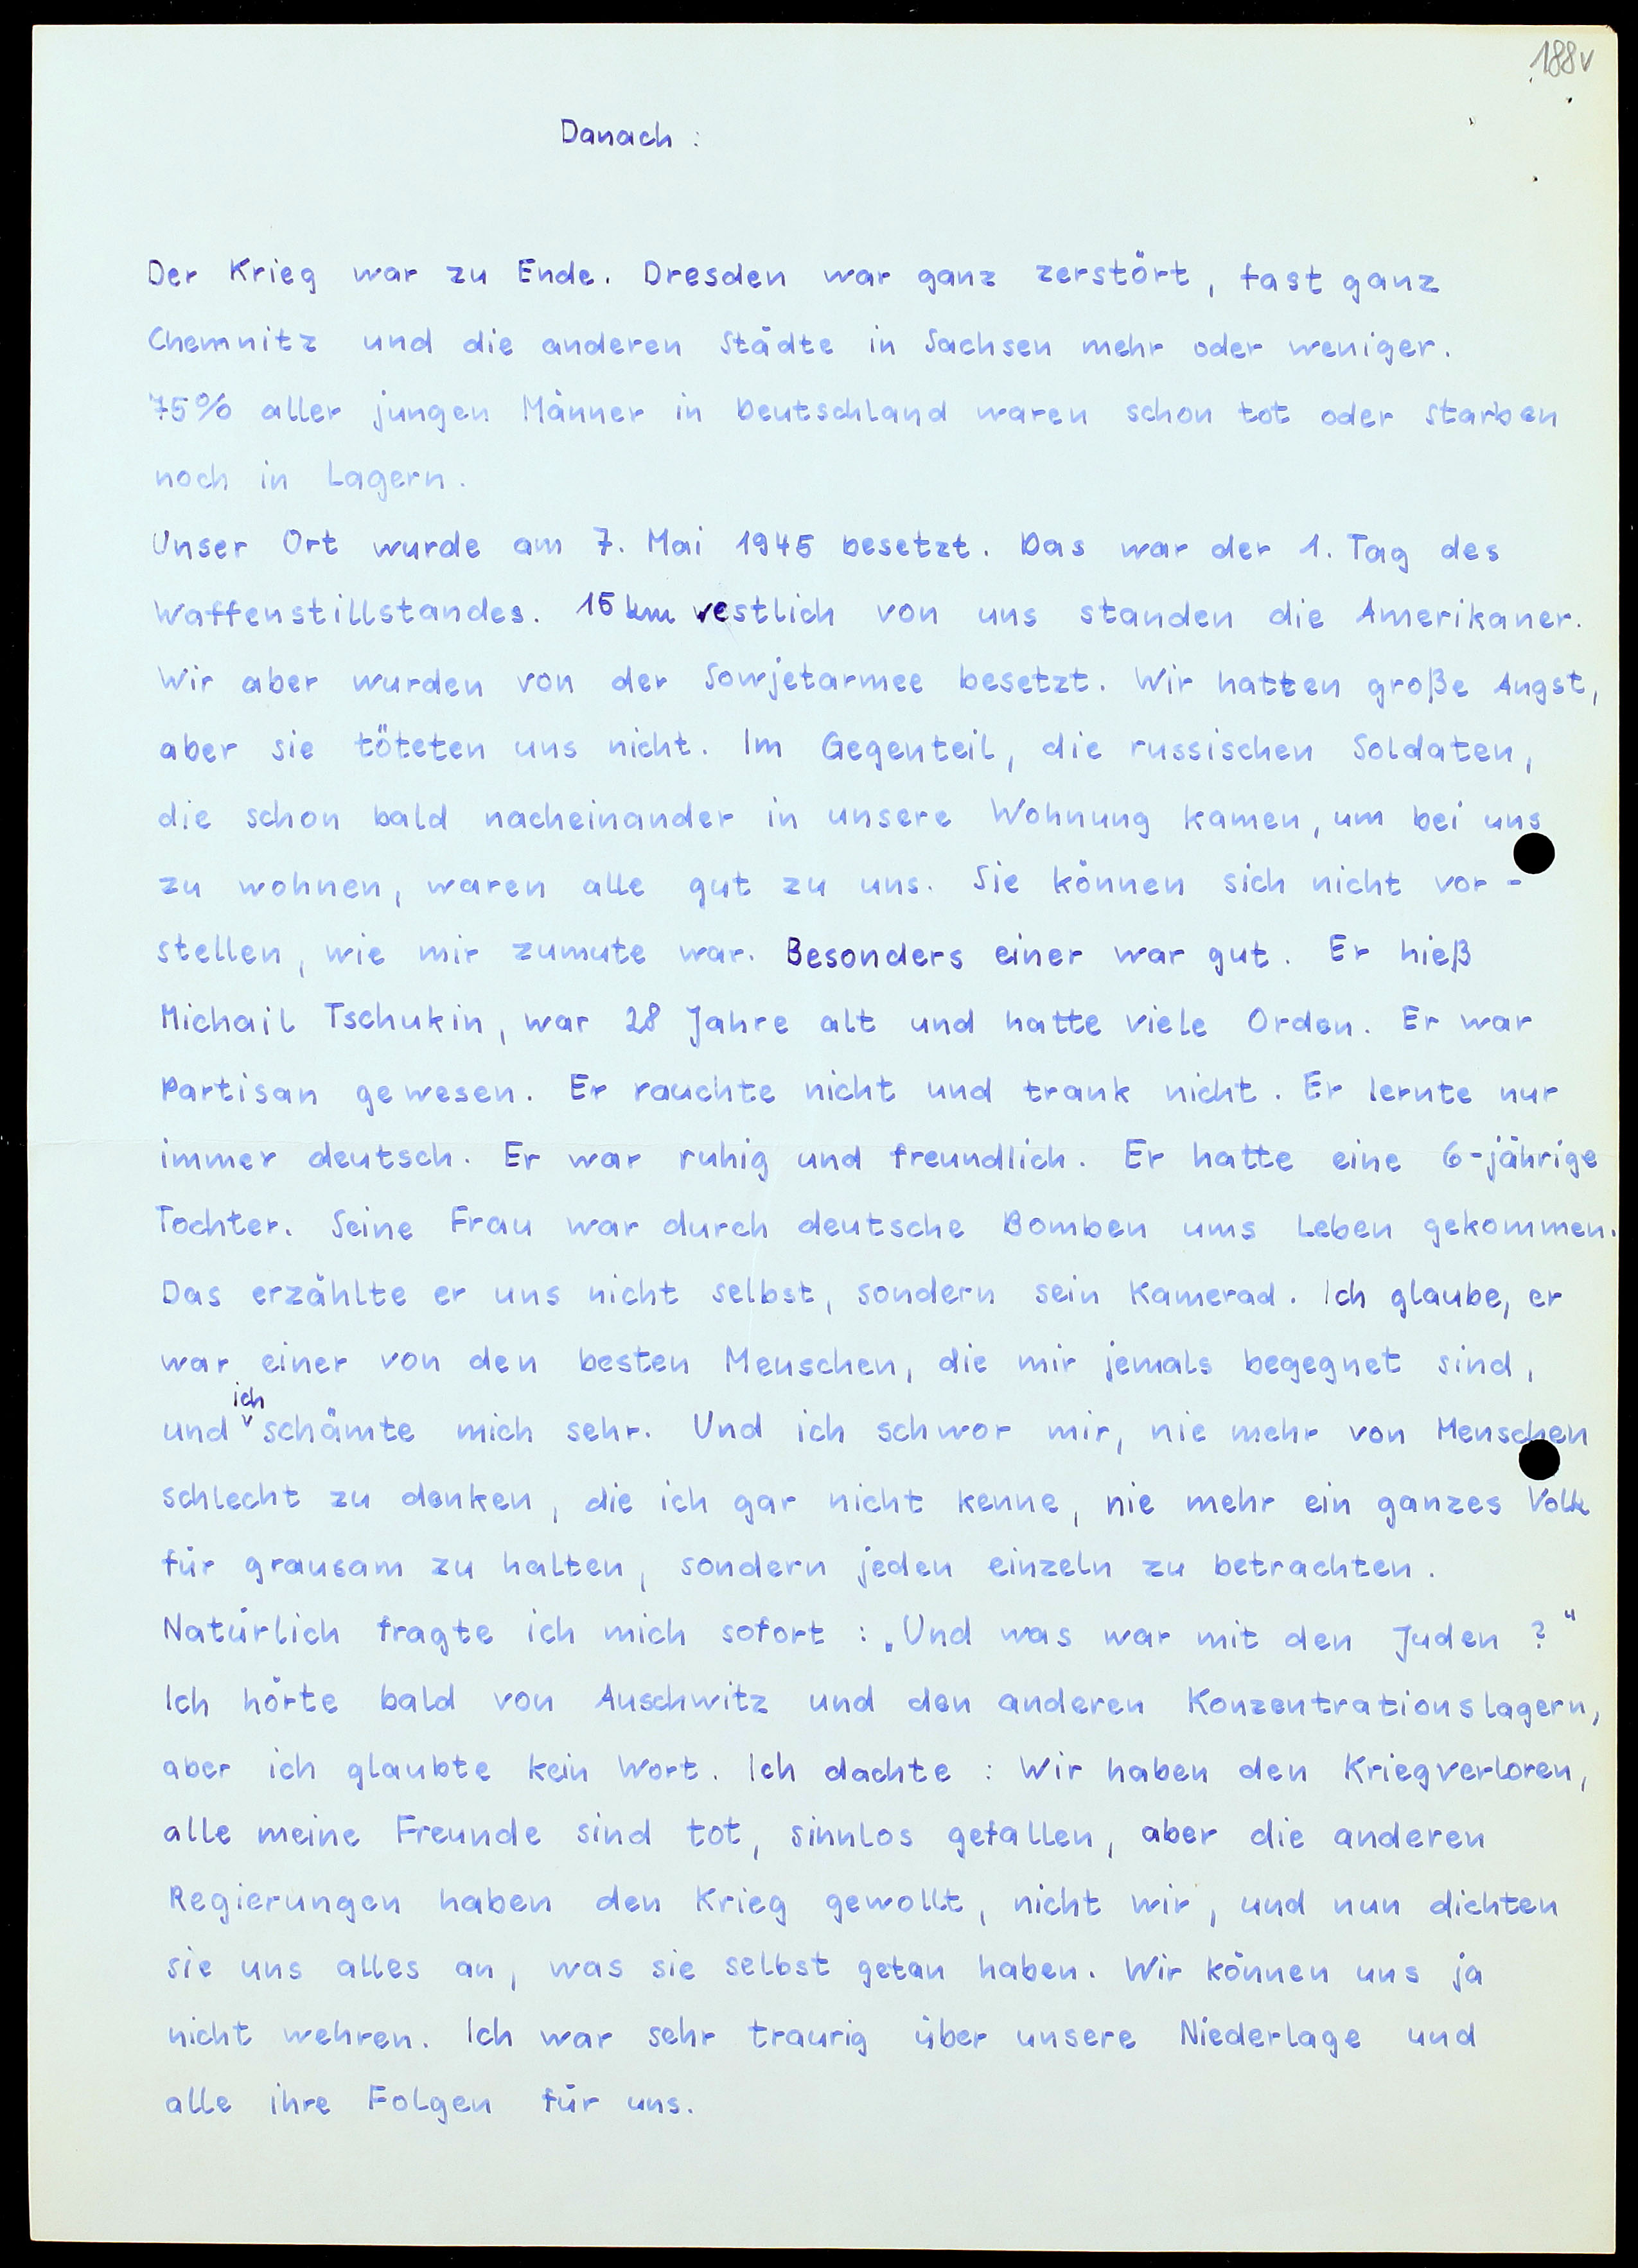 188v
Danach :
Der Krieg war zu Ende. Dresden war ganz zerstört, fast ganz
Chemnitz und die anderen Städte in Sachsen mehr oder weniger.
75% aller jungen Männer in Deutschland waren schon tot oder starben
noch in Lagern.
Unser Ort wurde am 7. Mai 1945 besetzt. Das war der 1. Tag des
Waffenstillstandes. 15 km westlich von uns standen die Amerikaner.
Wir aber wurden von der Sowjetarmee besetzt. Wir hatten große Angst,
aber sie töteten uns nicht. Im Gegenteil, die russischen Soldaten,
die schon bald nacheinander in unsere Wohnung kamen, um bei uns
zu wohnen, waren alle gut zu uns. Sie können sich nicht vor-
stellen, wie mir zumute war. Besonders einer war gut. Er hieß
Michail Tschukin, war 28 Jahre alt und hatte viele Orden. Er war
Partisan gewesen. Er rauchte nicht und trank nicht. Er lernte nur
immer deutsch. Er war ruhig und freundlich. Er hatte eine 6-jährige
Tochter. Seine Frau war durch deutsche Bomben ums Leben gekommen.
Das erzählte er uns nicht selbst, sondern sein Kamerad. Ich glaube, er
war einer von den besten Menschen, die mir jemals begegnet sind,
und ich schämte mich sehr. Und ich schwor mir, nie mehr von Menschen
schlecht zu denken, die ich gar nicht kenne, nie mehr ein ganzes Volk
für grausam zu halten, sondern jeden einzeln zu betrachten.
Natürlich fragte ich mich sofort : „Und was war mit den Juden ?"
Ich hörte bald von Auschwitz und den anderen Konzentrationslagern,
aber ich glaubte kein Wort. Ich dachte : Wir haben den Krieg verloren,
alle meine Freunde sind tot, sinnlos gefallen, aber die anderen
Regierungen haben den Krieg gewollt, nicht wir, und nun dichten
sie uns alles an, was sie selbst getan haben. Wir können uns ja
nicht wehren. Ich war sehr traurig über unsere Niederlage und
alle ihre Folgen für uns.